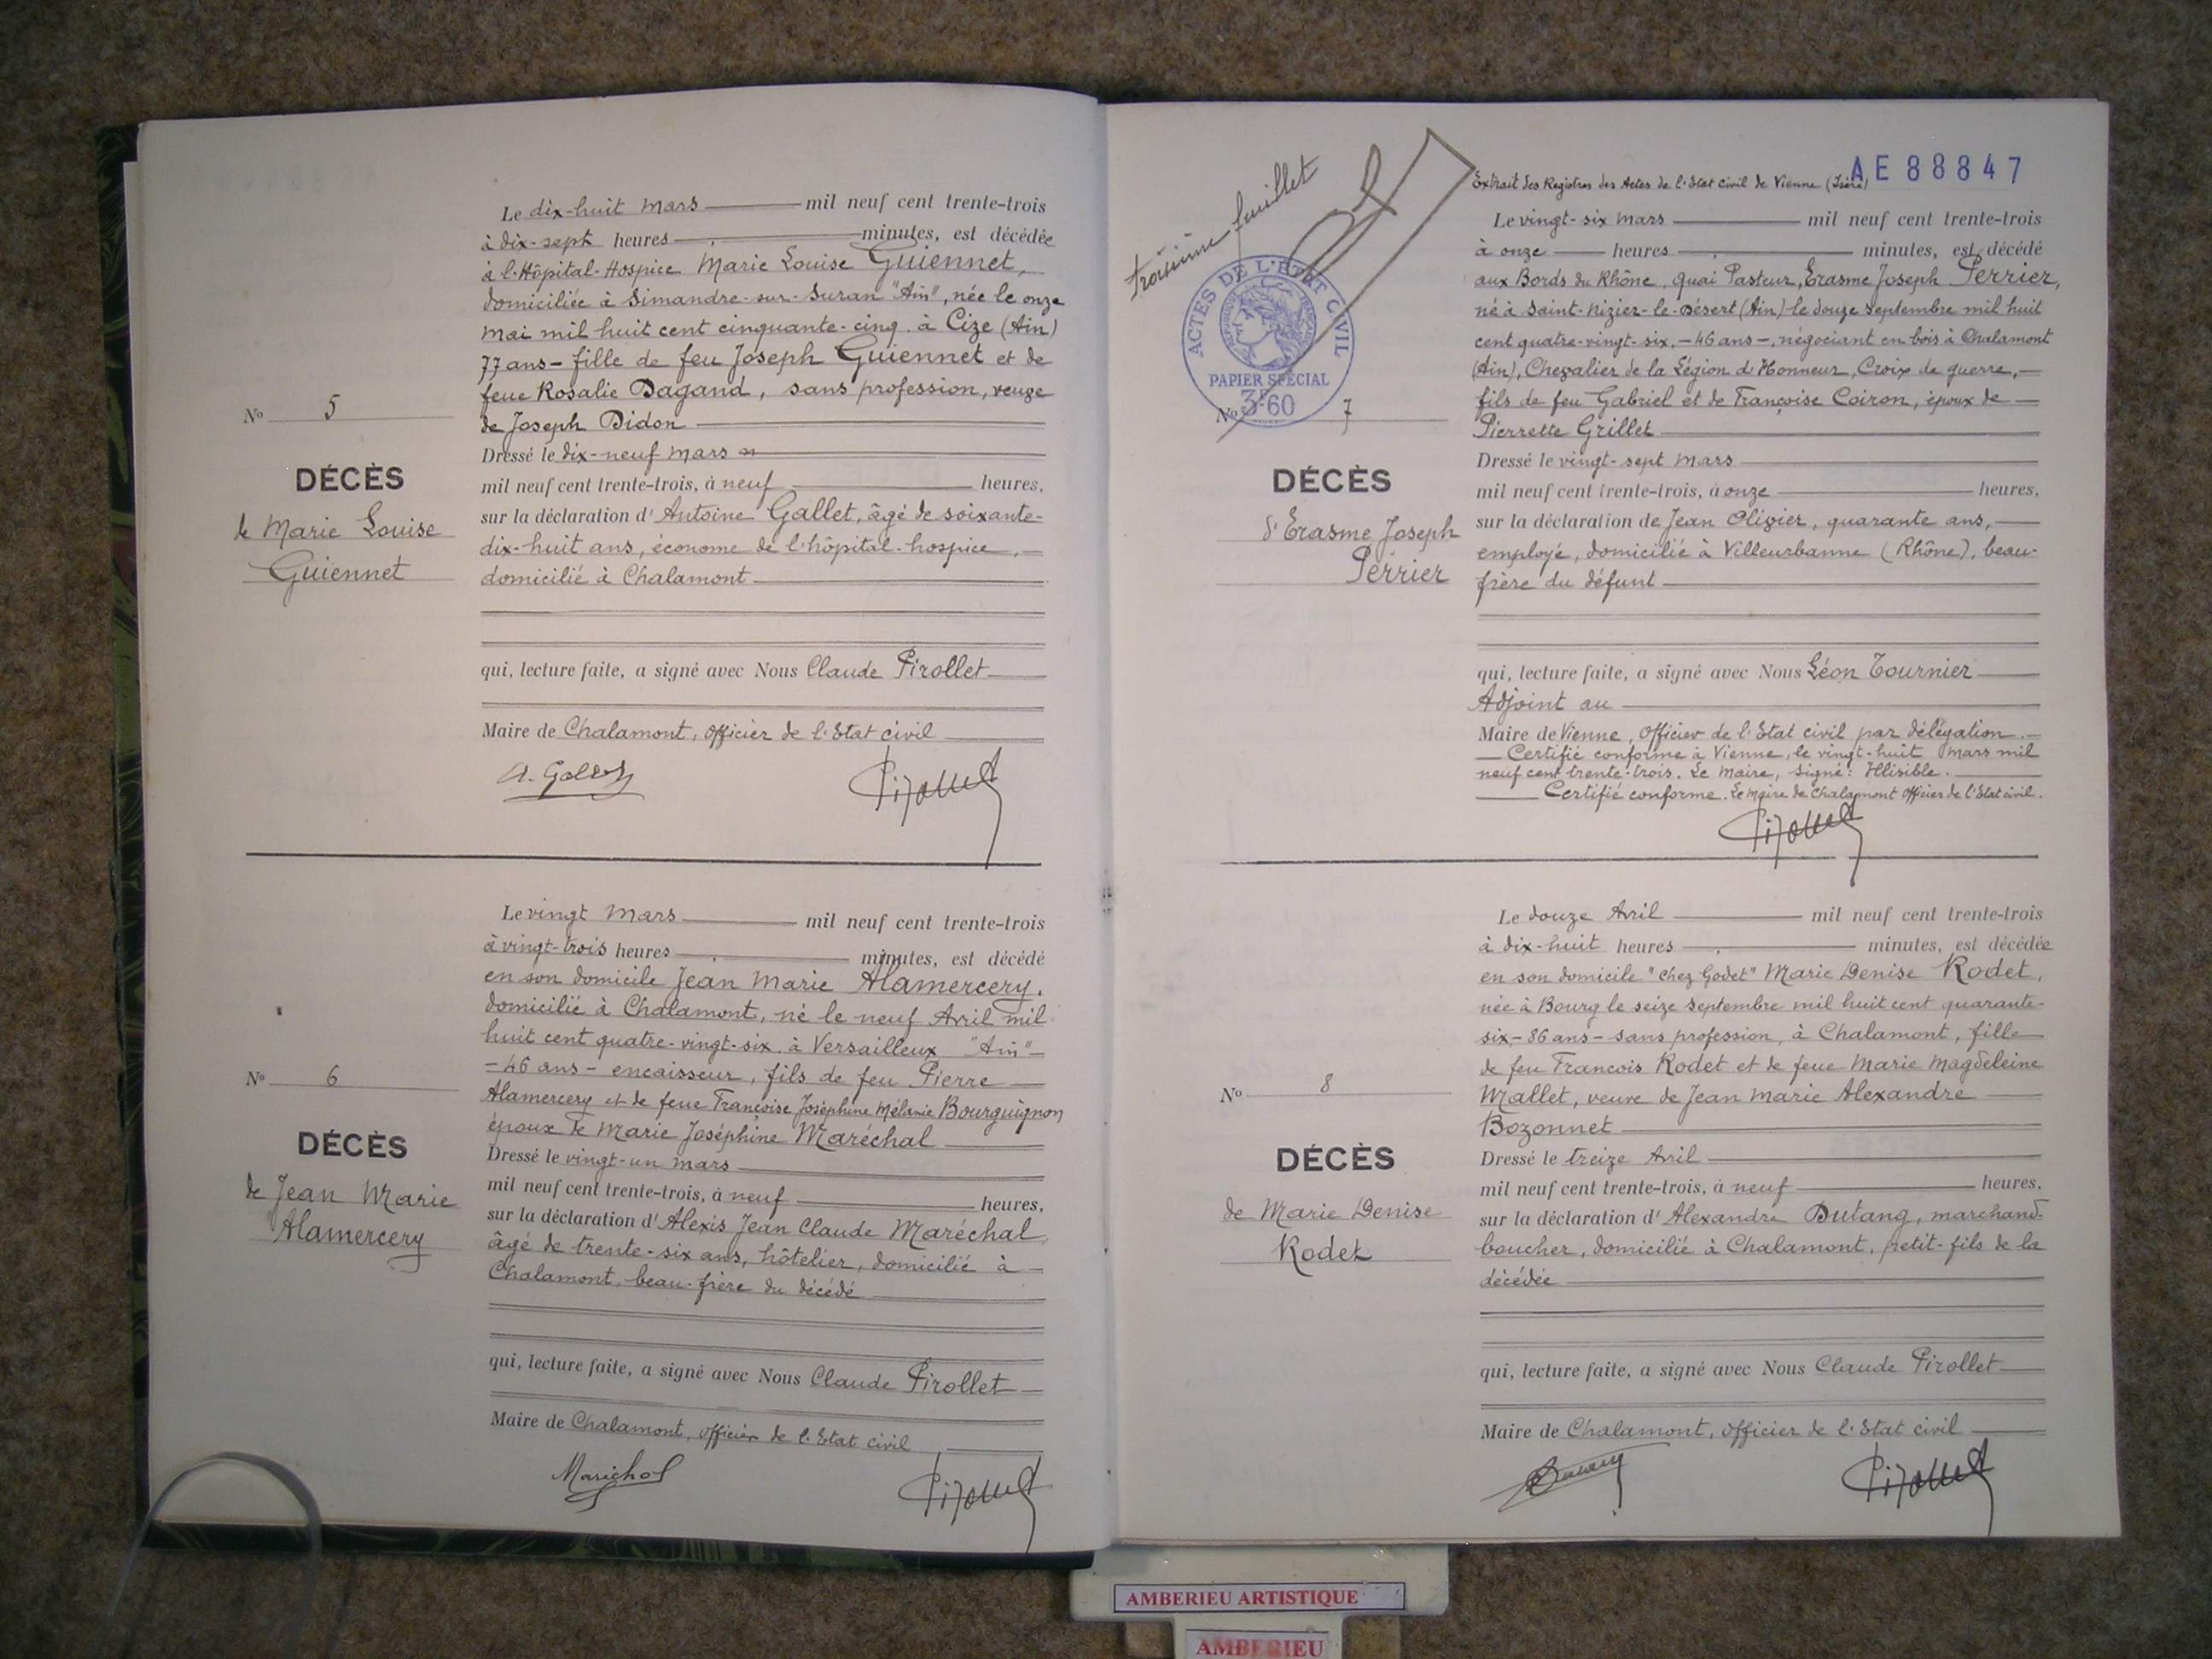 Le dix-huit Mars mil neuf cent trente-trois
à dix-sept heures minutes, est décédée
à l'Hôpital-Hospice Marie Louise Guiennet,
domiciliée à Simandre-sur-Suran "Ain", née le onze
Mai mil huit cent cinquante-cinq à Cize (Ain)
77 ans – fille de feu Joseph Guiennet et de
feue Rosalie Dagand, sans profession, veuve
de Joseph Didon
Dressé le dix-neuf Mars
mil neuf cent trente-trois, à neuf heures,
sur la déclaration d'Antoine Gallet, âgé de soixante-
dix-huit ans, économe de l'hôpital-hospice,
domicilié à Chalamont
qui, lecture faite, a signé avec Nous Claude Pirollet
Maire de Chalamont, Officier de l'Etat civil
No 5
DÉCÈS
de Marie Louise
Guiennet
Le vingt Mars mil neuf cent trente-trois
à vingt-trois heures minutes, est décédé
en son domicile Jean Marie Alamercery,
domicilié à Chalamont, né le neuf Avril mil
huit cent quatre-vingt-six à Versailleux "Ain"
– 46 ans – encaisseur, fils de feu Pierre
Alamercery et de feue Françoise Joséphine Mélanie Bourguignon
époux de Marie Joséphine Maréchal
Dressé le vingt-un mars
mil neuf cent trente-trois, à neuf heures,
sur la déclaration d'Alexis Jean Claude Maréchal,
âgé de trente-six ans, hôtelier, domicilié à
Chalamont, beau-frère du décédé
qui, lecture faite, a signé avec Nous Claude Pirollet
Maire de Chalamont, Officier de l'Etat civil
No 6
DÉCÈS
de Jean Marie
Alamercery
troisième feuillet
ACTES DE L'ETAT CIVIL
PAPIER SPÉCIAL
3F60
AE 88847
Extrait des Registres des Actes de l'Etat civil de Vienne (Isère)
Le vingt-six Mars mil neuf cent trente-trois
à onze heures minutes, est décédé
aux Bords du Rhône, quai Pasteur, Erasme Joseph Perrier,
né à Saint-Nizier-le-Désert (Ain) le douze Septembre mil huit
cent quatre-vingt-six, – 46 ans –, négociant en bois à Chalamont
(Ain), Chevalier de la Légion d'Honneur, Croix de guerre,
fils de feu Gabriel et de Françoise Coiron, époux de
Pierrette Grillet
Dressé le vingt-sept Mars
mil neuf cent trente-trois, à onze heures,
sur la déclaration de Jean Olivier, quarante ans,
employé, domicilié à Villeurbanne (Rhône), beau-
frère du défunt
qui, lecture faite, a signé avec Nous Léon Tournier
Adjoint au
Maire de Vienne, Officier de l'Etat civil par délégation.
Certifié conforme à Vienne, le vingt-huit Mars mil
neuf cent trente-trois. Le Maire, Signé: Illisible.
Certifié conforme. Le Maire de Chalamont Officier de l'Etat civil.
No 7
DÉCÈS
d'Erasme Joseph
Perrier
Le douze Avril mil neuf cent trente-trois
à dix-huit heures minutes, est décédée
en son domicile "chez Godet" Marie Denise Rodet,
née à Bourg le seize Septembre mil huit cent quarante-
six – 86 ans – sans profession, à Chalamont, fille
de feu Francois Rodet et de feue Marie Magdeleine
Mallet, veuve de Jean Marie Alexandre
Bozonnet
Dressé le treize Avril
mil neuf cent trente-trois, à neuf heures,
sur la déclaration d'Alexandre Dutang, marchand-
boucher, domicilié à Chalamont, petit-fils de la
décédée
qui, lecture faite, a signé avec Nous Claude Pirollet
Maire de Chalamont, Officier de l'Etat civil
No 8
DÉCÈS
de Marie Denise
Rodet
AMBERIEU ARTISTIQUE
AMBERIEU